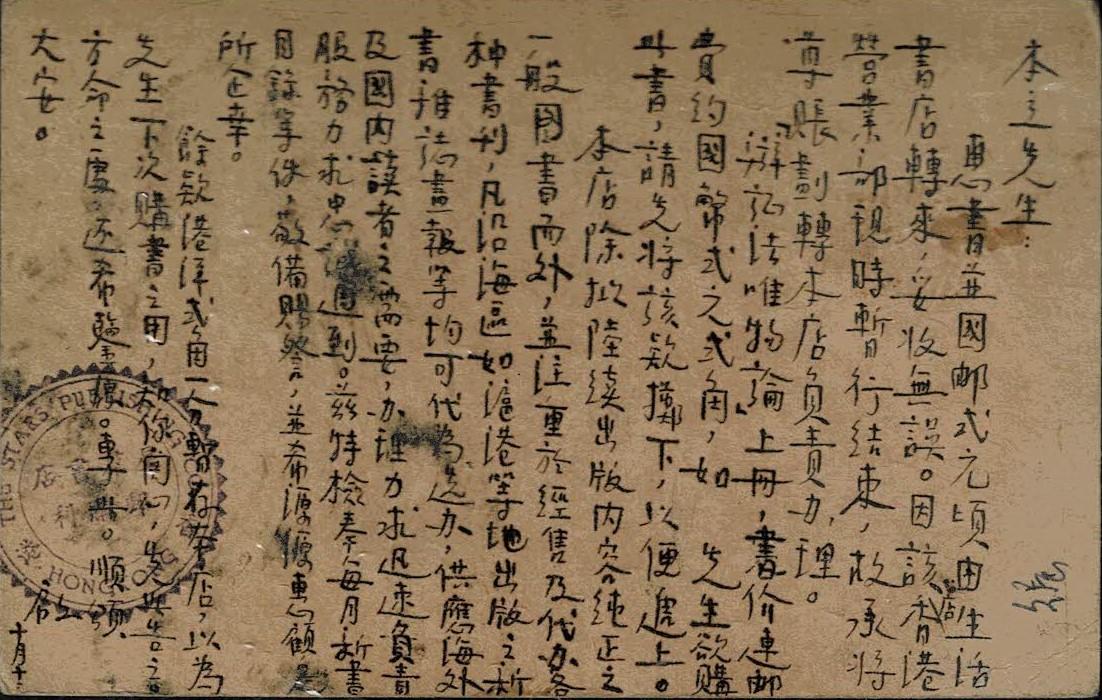 本立先生：
惠書並國邮弍元頃由生活
書店轉來，妥收無誤。因該店香港
營業部現時暫行結束，故承將
尊賬劃轉本店負責办理。
辯証法唯物論上冊，書价連邮
費約國幣弍元弍角，如 先生欲購
此書，請先將該款擲下，以便遞上。
本店除拟陸續出版内容純正之
一般圖書而外，並注重於經售及代办各
种書刊，凡沿海區如滬港等地出版之新
書雜誌畫報等均可代為选办，供應海外
及國内讀者之需要，办理力求迅速負責
服務力求忠 週到。茲特檢奉每月新書
目錄等件，敬備賜詧，並希源源惠顧是
所企幸。
餘款港洋弍角一分暫存本店，以為
先生下次購書之用，
方命之處，还希 。專此。順頌
大安。
啟
十月十
THE STARS PU
HONG
港